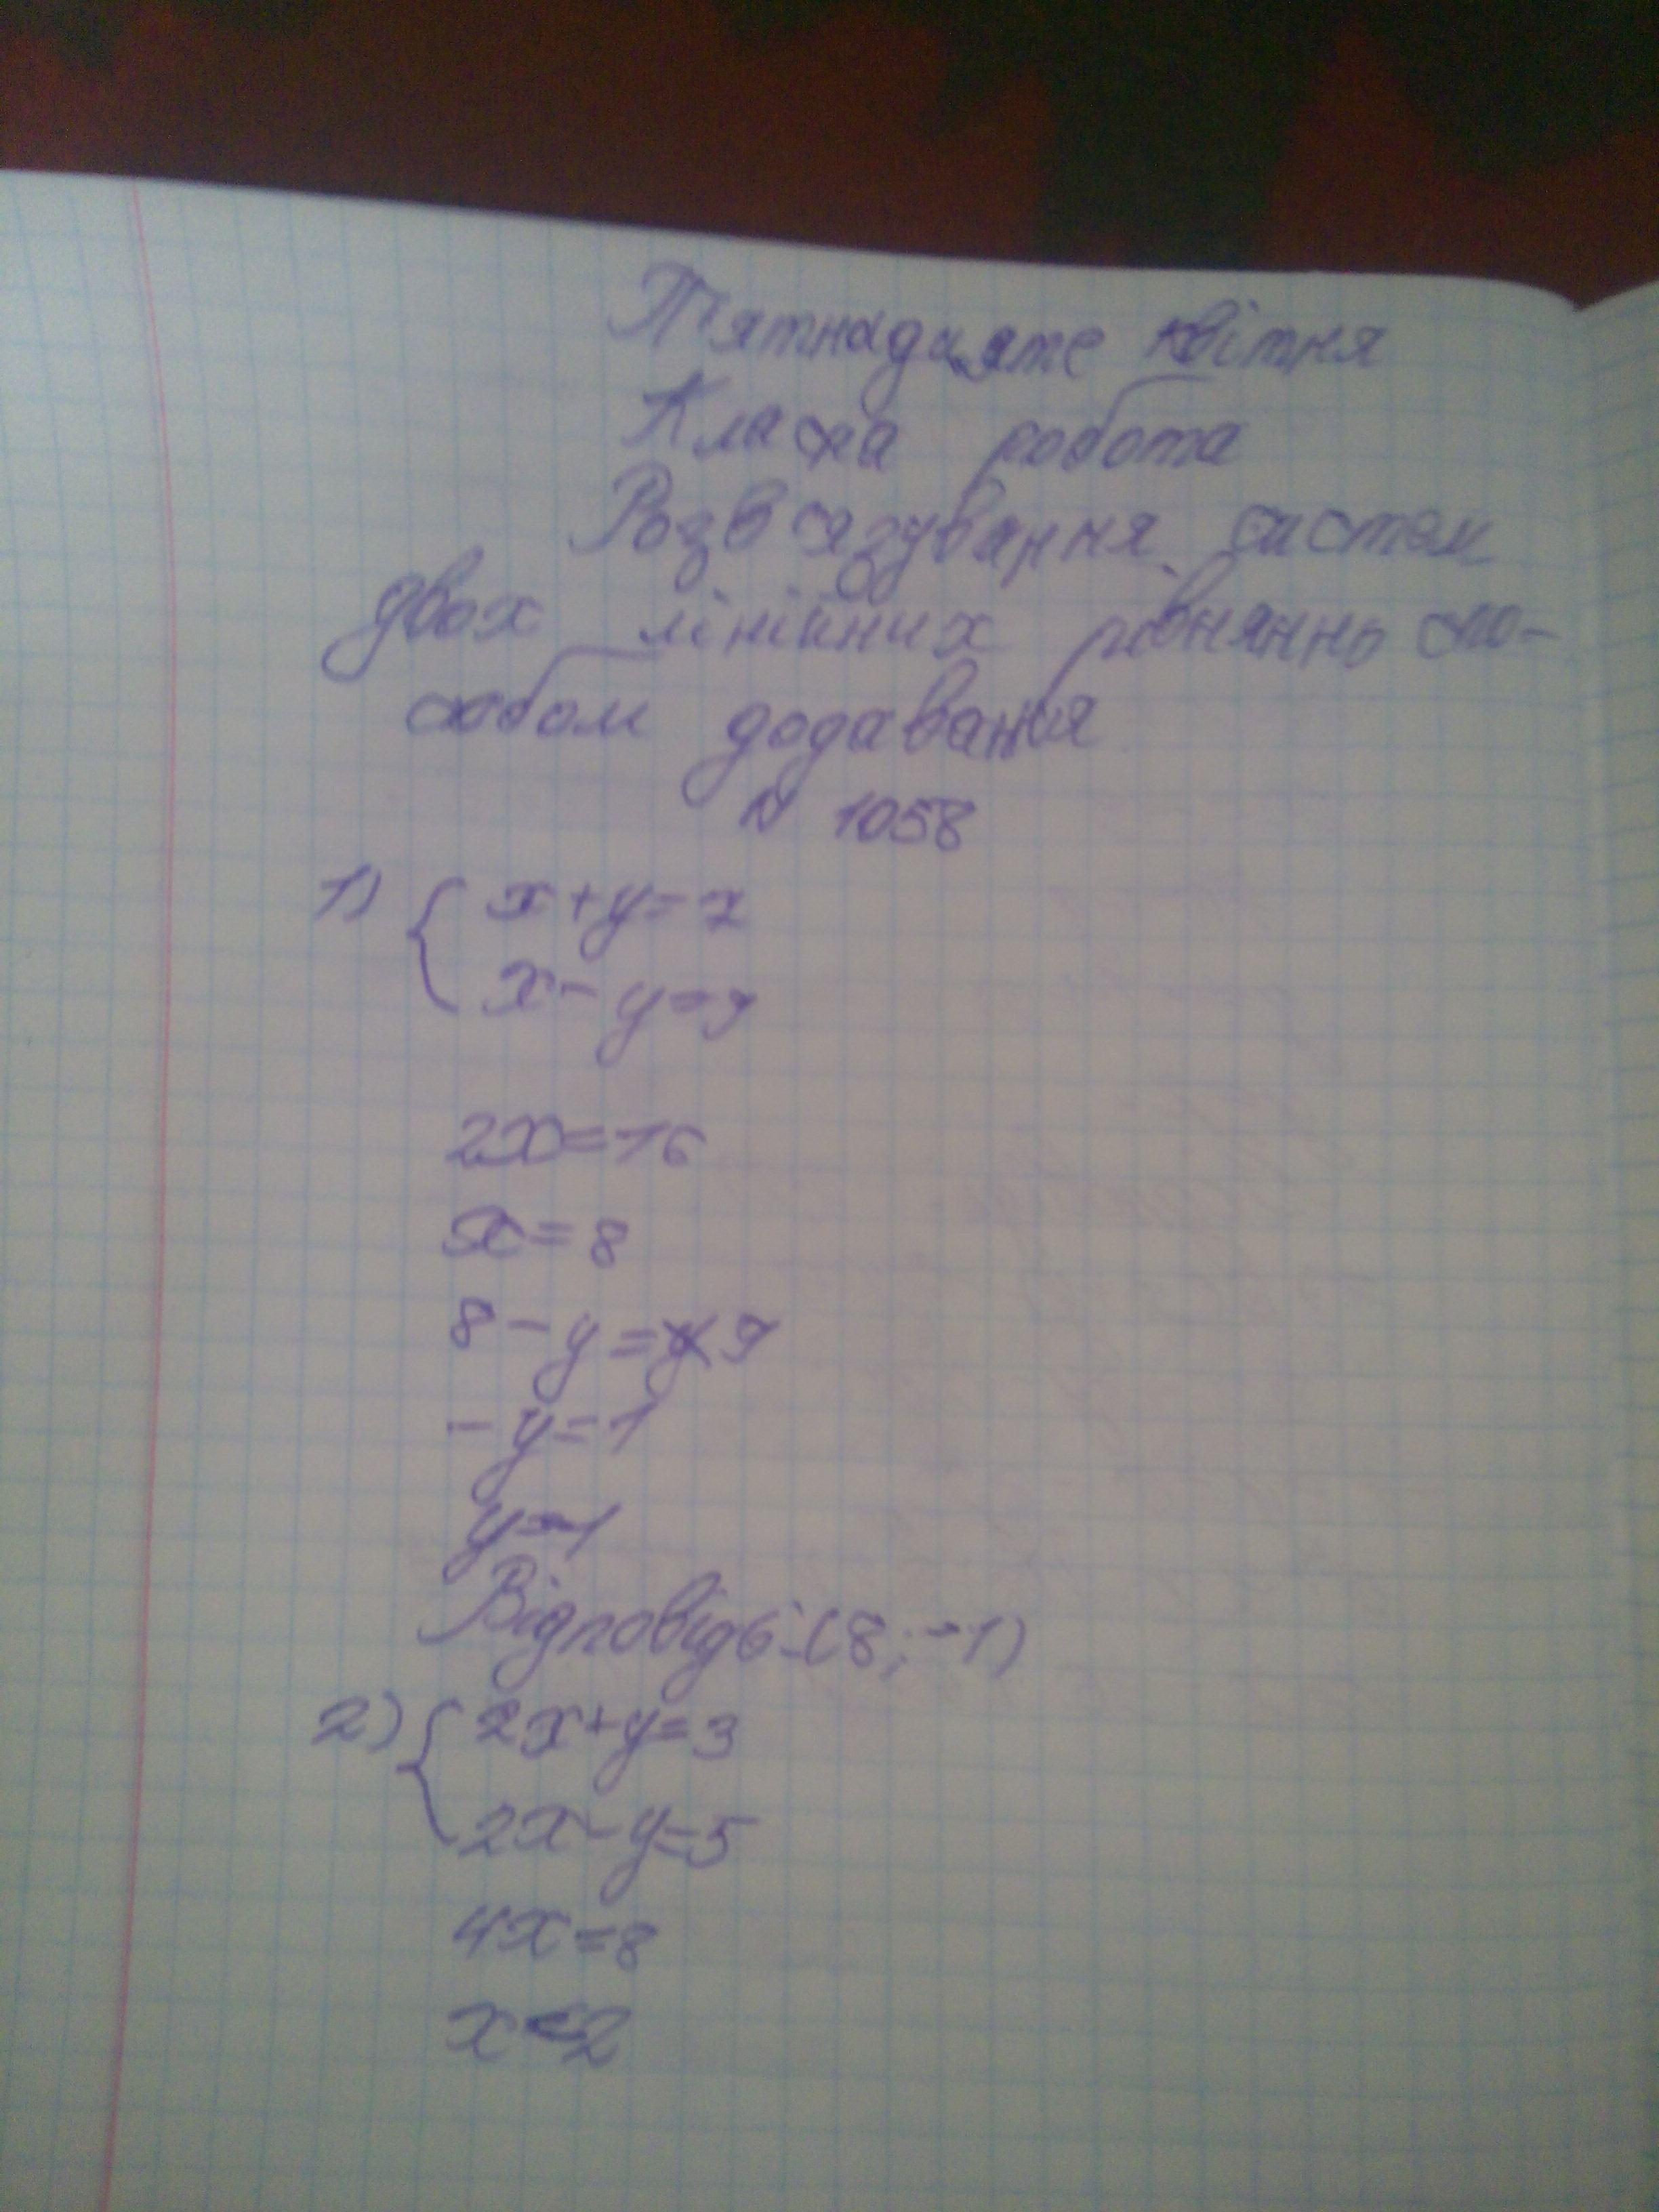 П'ятнадцяте квітня
Класна робота
Розв'язування систем
двох лінійних рівнянь спо-
собом додавання
N 1058
1) { x+y=7
x-y=9
2x=16
x=8
8-y=9
-y=1
y=-1
Відповідь:(8;-1)
2) { 2x+y=3
2x-y=5
4x=8
x=2